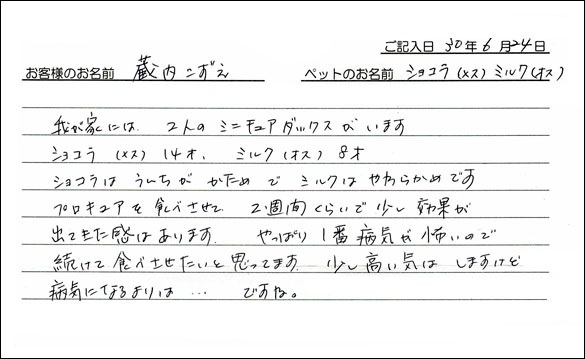 ご記入日 30年6月24日
お客様のお名前 蔵内こずえ ペットのお名前 ショコラ(メス)ミルク(オス)
我が家には 2人の ミニチュアダックスがいます
ショコラ(メス)14才、ミルク(オス)8才
ショコラは うんちが かためで ミルクは やわらかめです
プロキュアを食べさせて 2週間くらいで少し効果が
出てきた感はあります やっぱり1番病気が怖いので
続けて食べさせたいと思ってます 少し高い気はしますけど
病気になるよりは… ですね。